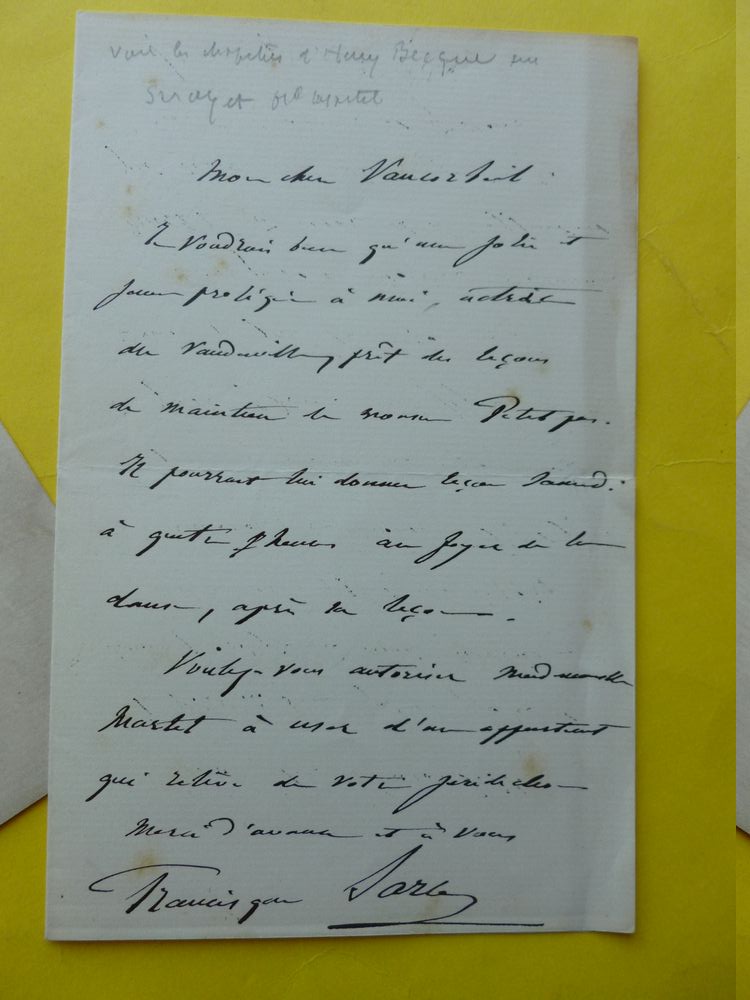 voir les chapitres d'Henry Becque sur
Sarcey et Mlle Martet
Mon cher Vaucorbeil
Je voudrais bien qu'une jolie et
jeune protégée à moi, actrice
du Vaudeville, prît des leçons
de maintien de monsieur Petitpas.
Il pourrait lui donner leçon samedi
à quatre heures au foyer de la
danse, après sa leçon.
Voulez-vous autoriser mademoiselle
Martet à user d'un appartement
qui relève de votre juridiction
Merci d'avance et à vous
Francisque Sarcey